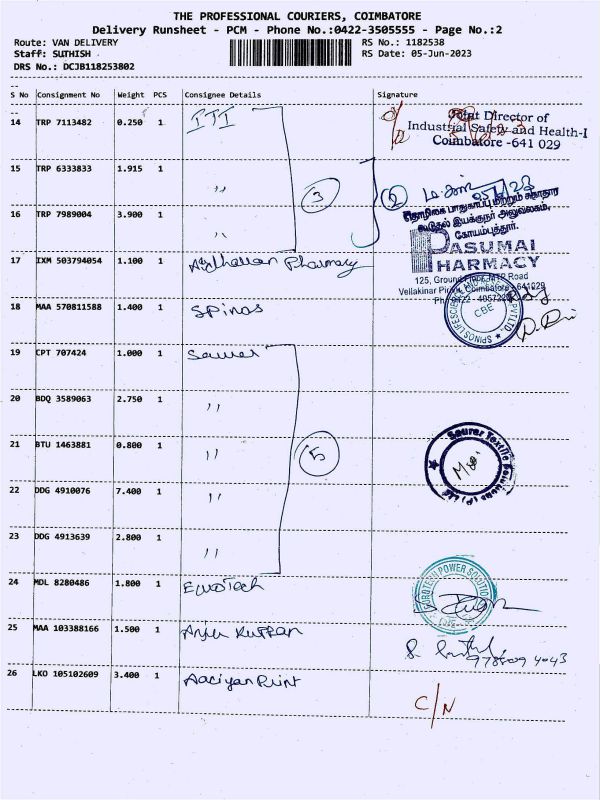 THE PROFESSIONAL COURIERS, COIMBATORE
Delivery Runsheet - PCM - Phone No.:0422-3505555 - Page No.:2
Route: VAN DELIVERY
RS No.: 1182538
Staff: SUTHISH
RS Date: 05-Jun-2023
DRS No.: DCJB118253802
S No Consignment No Weight PCS Consignee Details Signature
14 TRP 7113482 0.250 1 ITI
Joint Director of
Industrial Safety and Health-I
Coimbatore -641 029
15 TRP 6333833 1.915 1 ,,
3
2
16 TRP 7989004 3.900 1 ,,
கோயம்புத்தூர்.
17 IXM 503794054 1.100 1 Pharmacy
PASUMAI
PHARMACY
125, Ground Floor, MTP Road
Vellakinar Pirivu, Coimbatore - 641029
18 MAA 570811588 1.400 1 Spinos
CBE
19 CPT 707424 1.000 1 Saurer
20 BDQ 3589063 2.750 1 ,,
21 BTU 1463881 0.800 1 ,,
5
Saurer Textile Solutions
22 DDG 4910076 7.400 1 ,,
23 DDG 4913639 2.800 1 ,,
24 MDL 8280486 1.800 1 EuroTech
EUROTECH POWER SOLUTIO
25 MAA 103388166 1.500 1 Anju Kuttan
26 LKO 105102609 3.400 1 Aaciyan Print
C/N